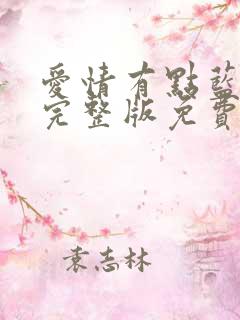 愛情有點藍
完整版免費
袁志林